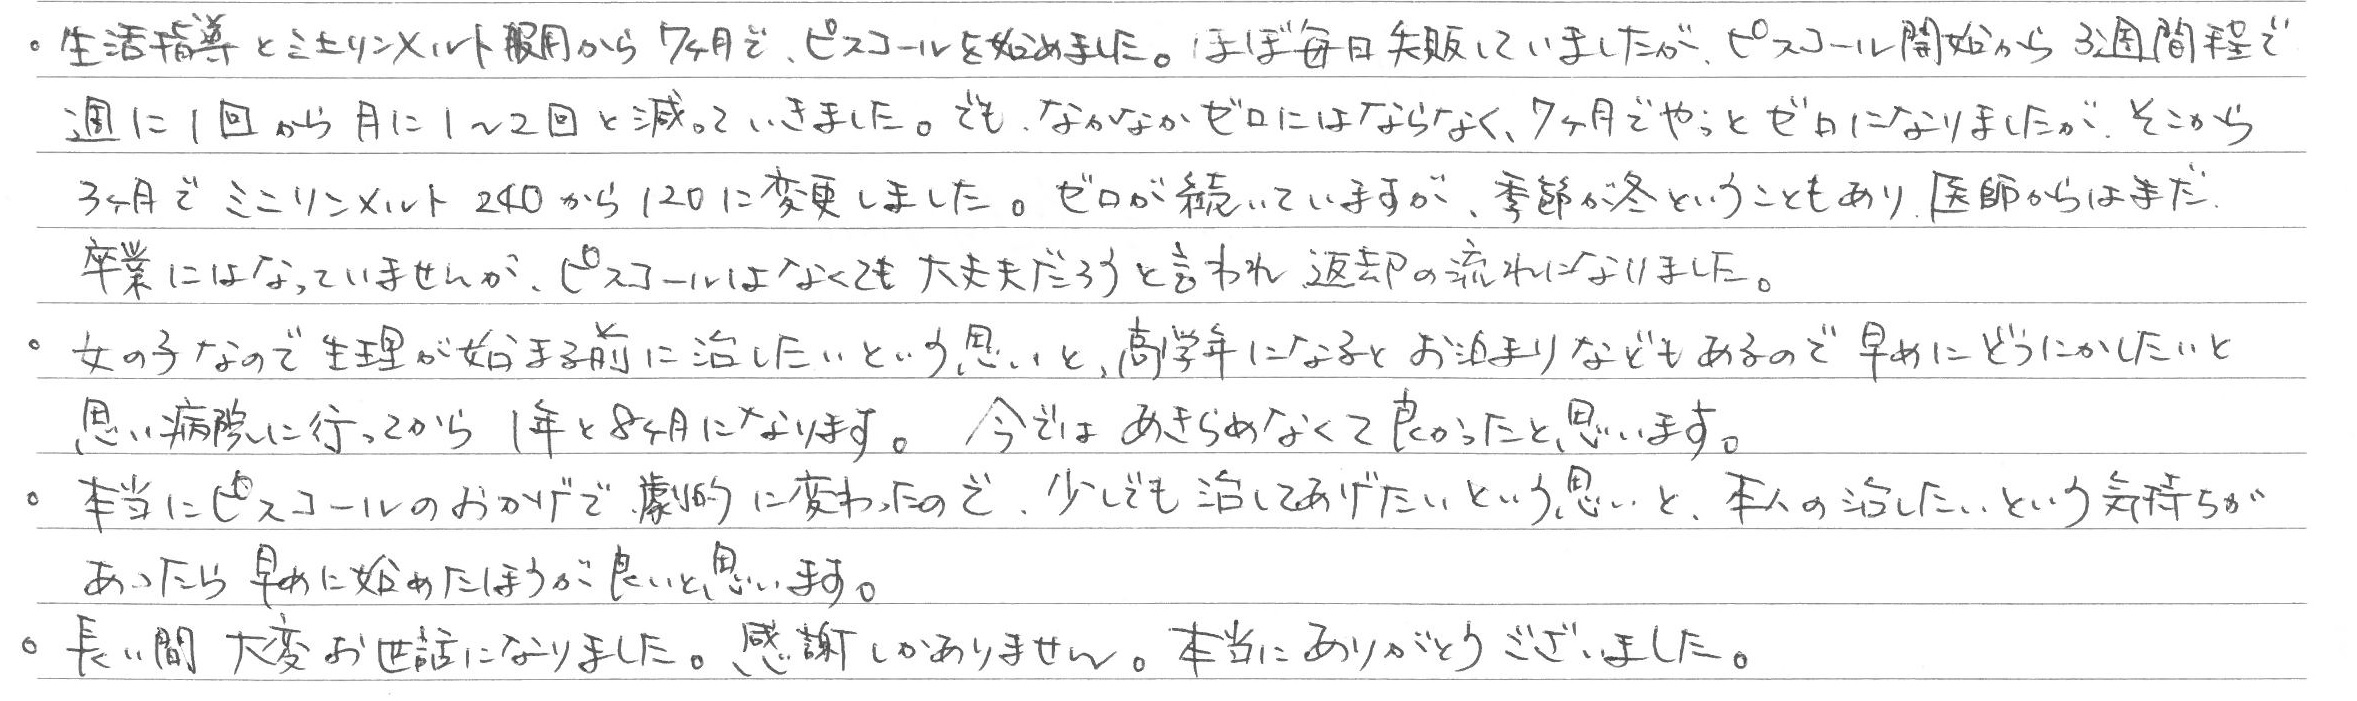 。生活指導とミニリンメルト服用から7ヶ月で、ピスコールを始めました。ほぼ毎日失敗していましたが、ピスコール開始から3週間程で
週に1回から月に1～2回と減っていきました。でも、なかなかゼロにはならなく、7ヶ月でやっとゼロになりましたが、そこから
3ヶ月でミニリンメルト240から120に変更しました。ゼロが続いていますが、季節が冬ということもあり、医師からはまだ、
卒業にはなっていませんが、ピスコールはなくても大丈夫だろうと言われ、返却の流れになりました。
。女の子なので生理が始まる前に治したいという思いと、高学年になるとお泊まりなどもあるので早めにどうにかしたいと
思い病院に行ってから1年と8ヶ月になります。今ではあきらめなくて良かったと思います。
。本当にピスコールのおかげで劇的に変わったので、少しでも治してあげたいという思いと、本人の治したいという気持ちが
あったら早めに始めたほうが良いと思います。
。長い間大変お世話になりました。感謝しかありません。本当にありがとうございました。